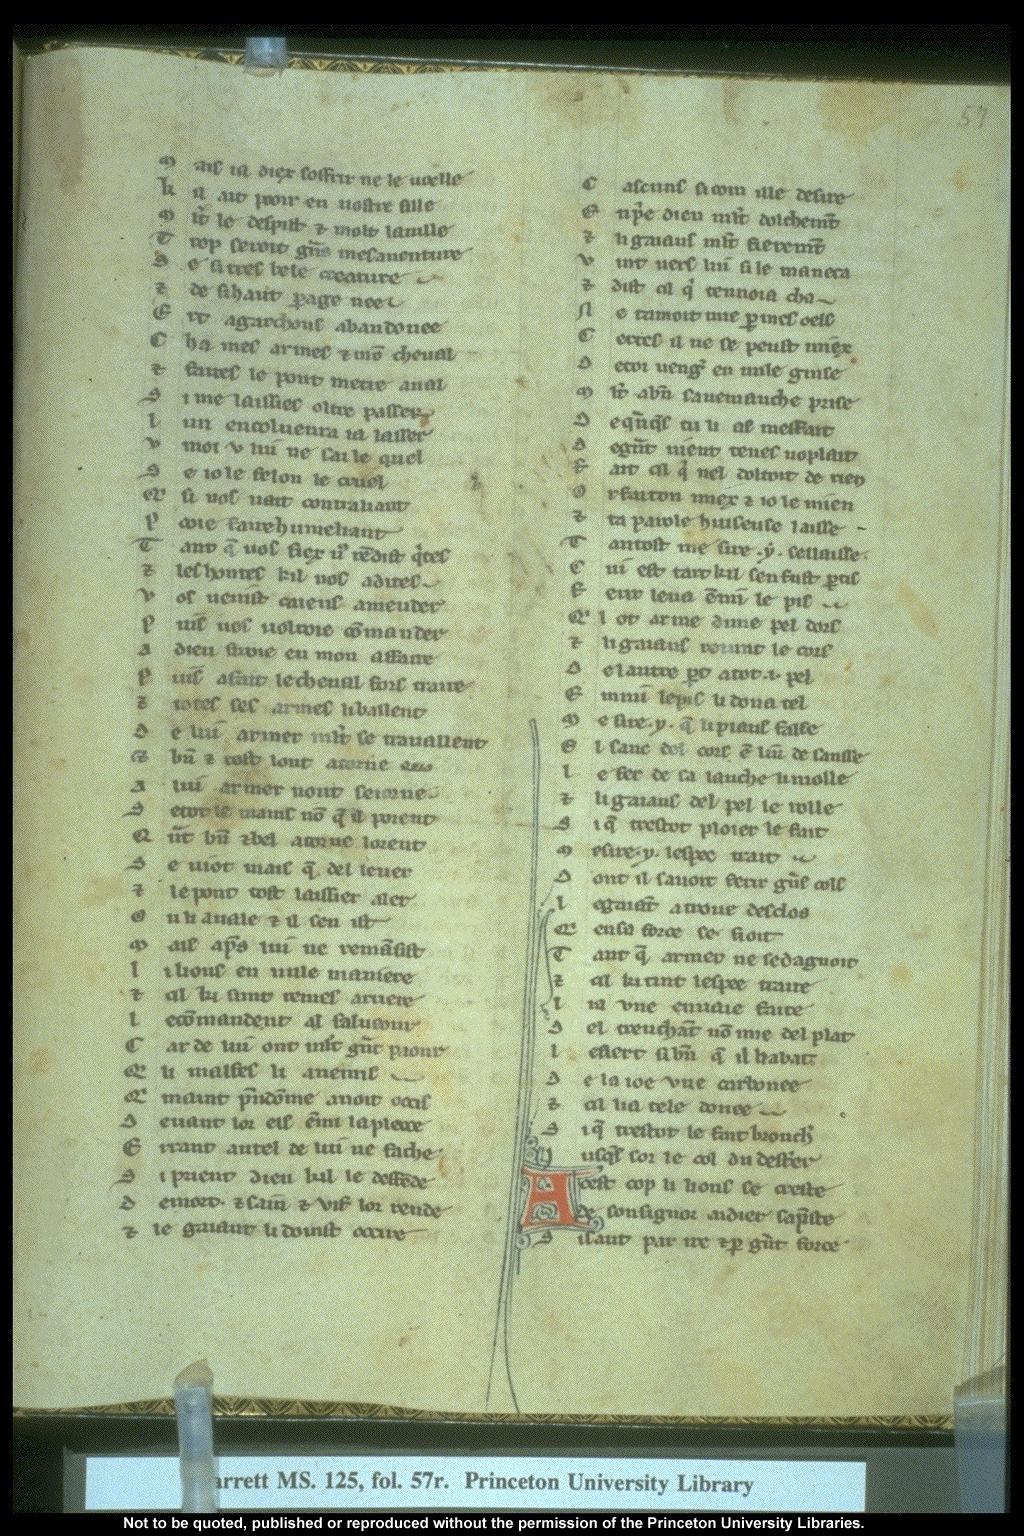 57
M ais ia diex soffrir ne le uoelle
K il ait pooir en uostre fille
M l't le despist ⁊ molt lauille
T rop seroit gñs mesauenture
D e si tres bele creature
⁊ de si haut parage nee
E rt a garchons abandonee
C ha mes armes ⁊ mõ cheual
⁊ faites le pont metre aual
S i me laissies oltre passer
l un en couenra ia lasser
v moi v lui ne sai le quel
S e io le felon le cruel
Q si uos uait contraliant
P ooie faire humeliant
T ant q̃ uos fiex u9 rẽdist q'tes
⁊ les hontes kil uos a dites
v os uenist caiens amender
P uis uos uolroie cõmander
a dieu siroie en mon affaire
P uis a fait le cheual fors traire
⁊ totes ses armes li baillent
D e lui armer ml't se trauaillent
⁊ bñ ⁊ tost lont atorne
a lui armer nont seiorne
S e tot le mains nõ q̃ il porent
Q ũt bñ ⁊ bel atorne lorent
S e niot mais q̃ del leuer
⁊ le pont tost laissier aler
O n li auale ⁊ il sen ist
M ais aps lui ne remãsist
l i lions en nule maniere
⁊ cil ki sunt remes ariere
l e cõmandent al salueour
C ar de lui ont m'lt gñt paour
Q li malfes li anemis
Q maint pñdõme auoit ocis
D euant lor eis ẽmi la place
E itant autel de lui ne face
S i prient dieu kil le deffẽde
D e mort ⁊ sain ⁊ vif lor rende
⁊ le gaiant li doinst ocire
C ascuns si com il le desire
E n p'e dieu ml't dolchemt̃
⁊ li gaians ml't fierement
v int uers lui si le maneca
⁊ dist cil q' tenuoia cha
N e tamoit mie p mes oels
C ertes il ne se peust miex
D e toi uengr en nule guise
M l't a bñ sa ueniance prise
D e q̃nq's tu li as meffait
D e gñt nient tenes uo plait
F ait cil q' nel doltoit de rien
O r fai ton miex ⁊ io le mien
⁊ ta parole huiseuse laisse
T antost me sire .y. seslaisse
C ui est tart kil sen fust ptis
F erir leua ẽmi le pis
Q l ot arme dune pel dors
⁊ li gaians reuint le cors
D e lautre pt atot .i. pel
E mmi le pis li dona tel
M e sire .y. q̃ li piaus false
E l sanc del cors ẽ liu de salse
l e fer de sa lanche li molle
⁊ li gaians del pel le rolle
S i q̃ trestot ploier le fait
M esire .y. lespee trait
D ont il sauoit ferir gñs cols
l e gaiant a troue desclos
Q en sa force se fioit
T ant q̃ armer ne se dagnoit
⁊ cil ki tint lespee traite
l ia vne enuaie faite
D el trenchãt nõ mie del plat
l e fiert si bñ q̃ il li abat
D e la ioe vne carbonee
⁊ cil li a tele donee
S i q̃ trestot le fait bronch'
J usq's sor le col du destrier
A cest cop li lions se creste
de son signor aidier sapreste
S i saut par ire ⁊ p gñt force
arrett MS. 125, fol. 57r. Princeton University Library
Not to be quoted, published or reproduced without the permission of the Princeton University Libraries.